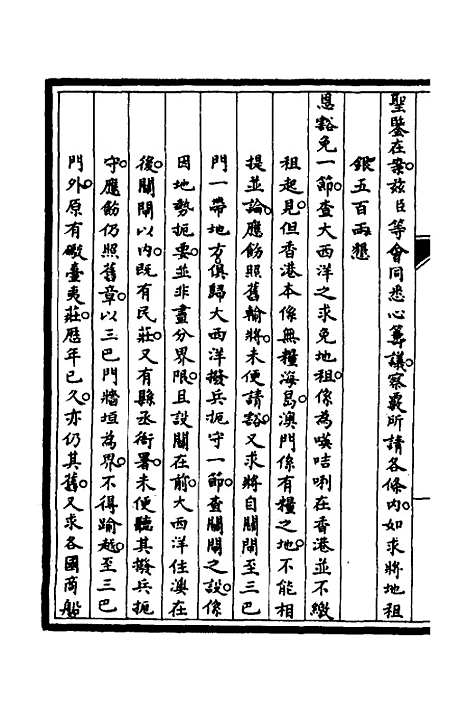 聖鑒在案。茲臣等會同悉心籌議。察覈所請各條內。如求將地租
銀五百兩懇
恩豁免一節。查大西洋之求免地租。係為嘆咭唎在香港並不繳
租起見。但香港本係無糧海島。澳門係有糧之地。不能相
提並論。應飭照舊輸將。未便請豁。又求將自關閘至三巴
門一帶地方。俱歸大西洋撥兵扼守一節。查關閘之設。係
因地勢扼要。並非畫分界限。且設關在前。大西洋住澳在
後。關閘以內。既有民莊。又有縣丞衙署。未便聽其撥兵扼
守。應飭仍照舊章。以三巴門牆垣為界。不得踰越。至三巴
門外。原有礮臺夷莊。歷年已久。亦仍其舊。又求各國商船